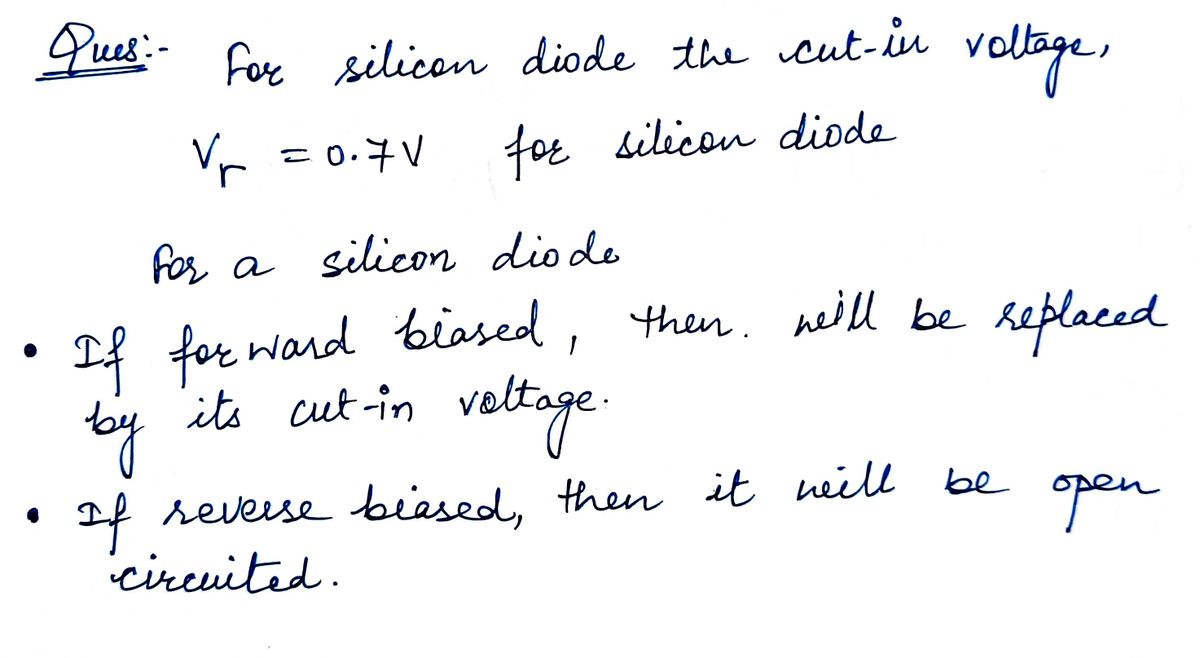 Ques:- For silicon diode the cut-in voltage,
Vr = 0.7V for silicon diode
For a silicon diode
• If forward biased, then. will be replaced
by its cut-in voltage.
• If reverse biased, then it will be open
circuited.